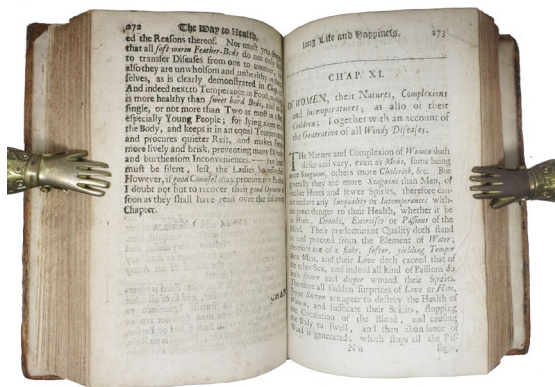 272 The Way to Health,
ed the Reasons thereof. Nor must you
that all soft warm Feather-Beds do not only
to transfer Diseases from one to another,
also they are unwholsom and unhealthy in
selves, as is clearly demonstrated in
And indeed next to Temperance in Food,
is more healthy than sweet hard Beds,
single, or not more than Two at most in a
especially Young People; for lying alone
the Body, and keeps it in an equal Temper
and procures quieter Rest, and makes
more lively and brisk, preventing many
and burthensom Inconveniences. But
must be silent, lest the Ladies
However, if good Counsel may procure
I doubt not but to recover their good Opinion
soon as they shall have read over the
Chapter.
CHAP.
long Life and Happiness. 273
CHAP. XI.
Of WOMEN, their Natures, Complexions
and Intemperatures; as also of their
Children; Together with an account of
the Generation of all Windy Diseases.
The Nature and Complexion of Women doth
differ and vary, even as Mens, some being
more Sanguine, others more Cholerick, &c. But
generally they are more Sanguine than Men, of
weaker Heats and fewer Spirits, therefore can
not endure any Inequality or Intemperances with-
out great danger to their Health, whether it be
in Meats, Drinks, Exercises or Passions of the
Mind. Their predominant Quality doth stand
in and proceed from the Element of Water;
therefore are of a finer, softer, yielding Temper
than Men, and their Love doth exceed that of
the other Sex, and indeed all kind of Passions do
and deeper wound their Spirits.
Therefore all sudden surprizes of Love or Hate,
Joy or Sorrow are apter to destroy the Health of
Women, and suffocate their Spirits, stopping
the Circulation of the Blood, and causing
the Body to swell, and then abundance of
Wind is generated, which stops all the Pas-
N n sages,